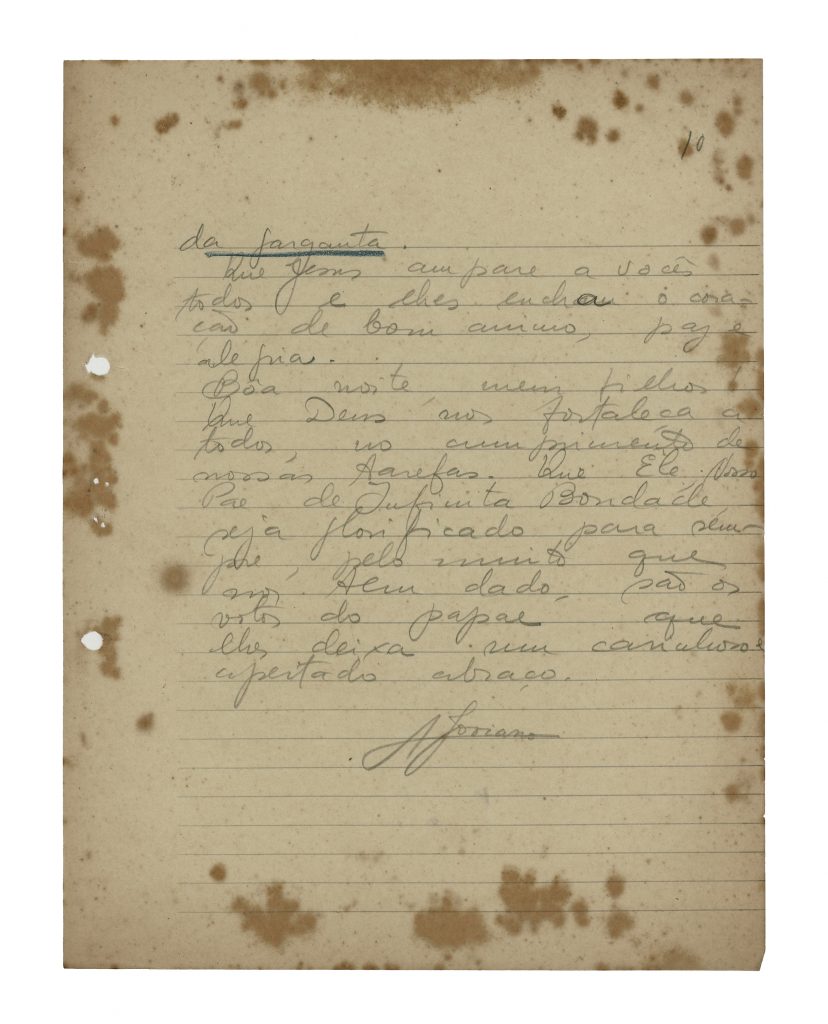 10
da garganta.
Que Jesus ampare a vocês
todos e lhes encha o cora-
ção de bom animo, paz e
alegria.
Bôa noite, meus filhos!
Que Deus nos fortaleça a
todos, no cumprimento de
nossas tarefas. Que Ele, Nosso
Pae de Infinita Bondade
seja glorificado para sem-
pre, pelo muito que
nos tem dado, são os
votos do papae que
lhes deixa um carinhoso e
apertado abraço.
A Joviano